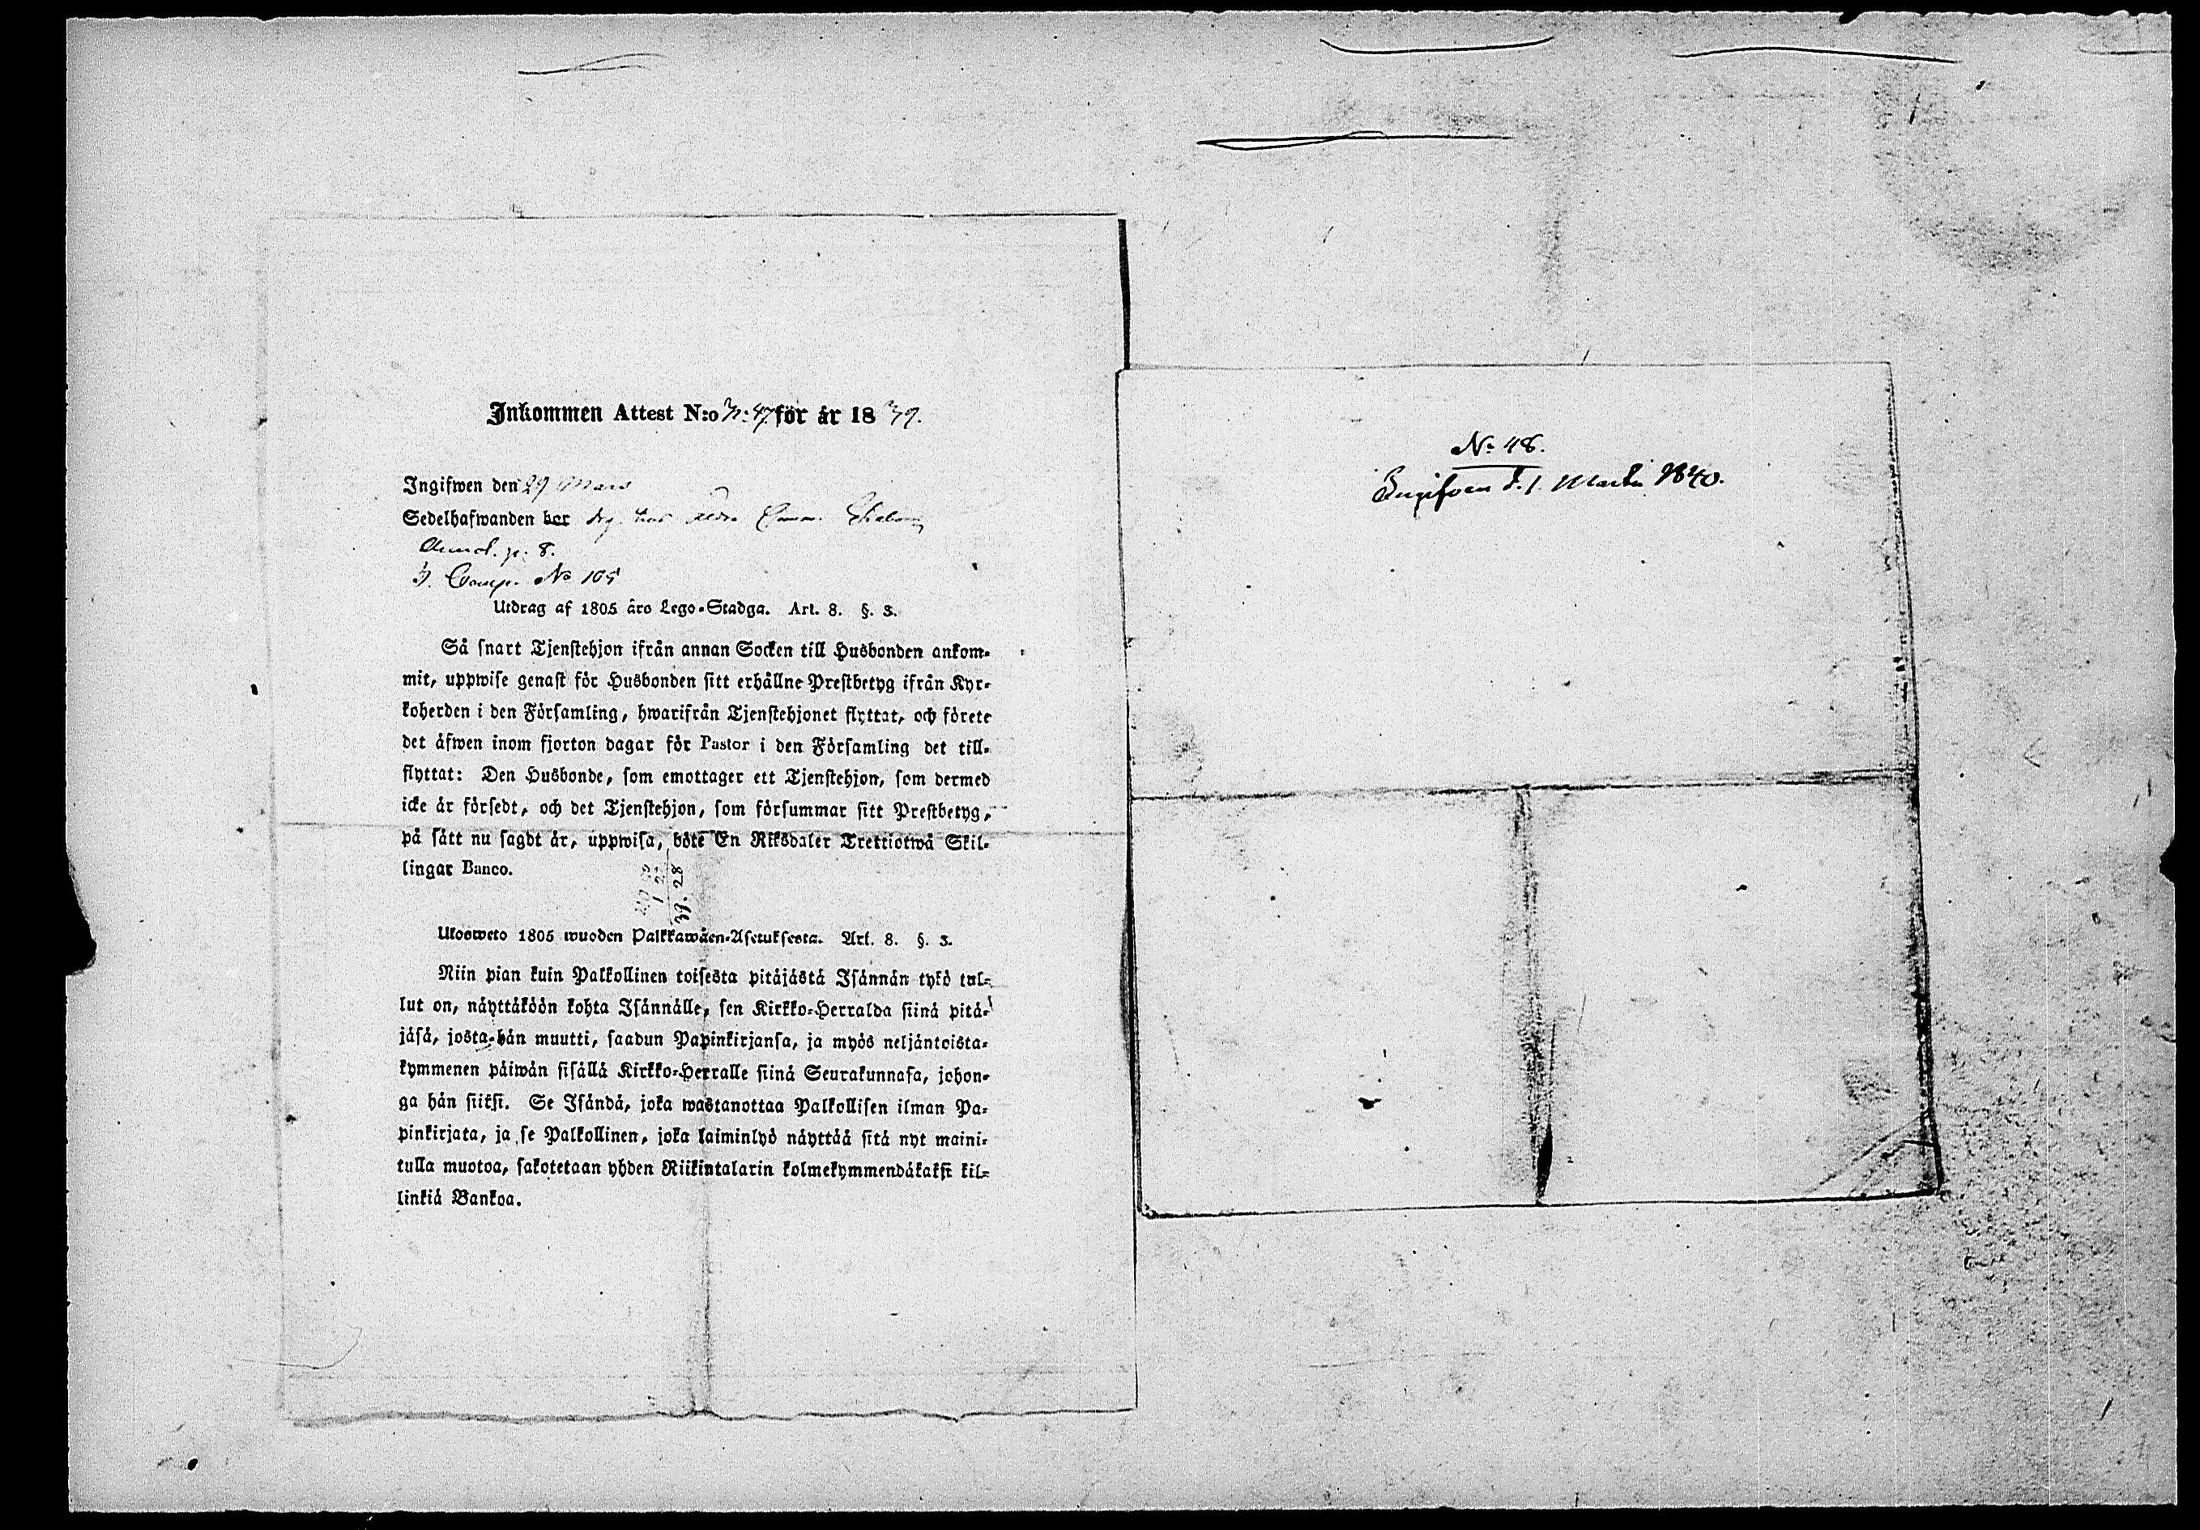 Inkommen Attest N:o 47. för år 1839.
Ingifwen den 29 Mars
Sedelhafwanden bor
p. 8.
3. Comp. No 105
Utdrag af 1805 års Lego-Stadga. Art. 8. §. 3.
Så snart Tjenstehjon ifrån annan Socken till Husbonden ankom-
mit, uppwise genast för Husbonden sitt erhållne Prestbetyg ifrån Kyr-
koherden i den Församling, hwarifrån Tjenstehjonet flyttat, och förete
det äfwen inom fjorton dagar för Pastor i den Församling det till-
flyttat: Den Husbonde, som emottager ett Tjenstehjon, som dermed
icke är försedt, och det Tjenstehjon, som försummar sitt Prestbetyg,
på sätt nu sagdt är, uppwisa, böte En Riksdaler Trettiotwå Skil-
lingar Banco.
39. 28
Ulosweto 1805 wuoden Palkkawäen-Asetuksesta. Art. 8. §. 3.
Niin pian kuin Palkollinen toisesta pitäjästä Isännän tykö tul-
lut on, näyttäköön kohta Isännälle, sen Kirkko-Herralda siinä pitä-
jäsä, josta hän muutti, saadun Papinkirjansa, ja myös neljäntoista-
kymmenen päiwän sisällä Kirkko-Herralle siinä Seurakunnasa, johon-
ga hän siiksi. Se Isändä, joka wastanottaa Palkollisen ilman Pa-
pinkirjata, ja se Palkollinen, joka laiminlyö näyttää sitä nyt maini-
tulla muotoa, sakotetaan yhden Riikintalarin kolmekymmendäkaksi kil-
linkiä Bankoa.
No 48.
Ingifven d. 1. Martii 1840.